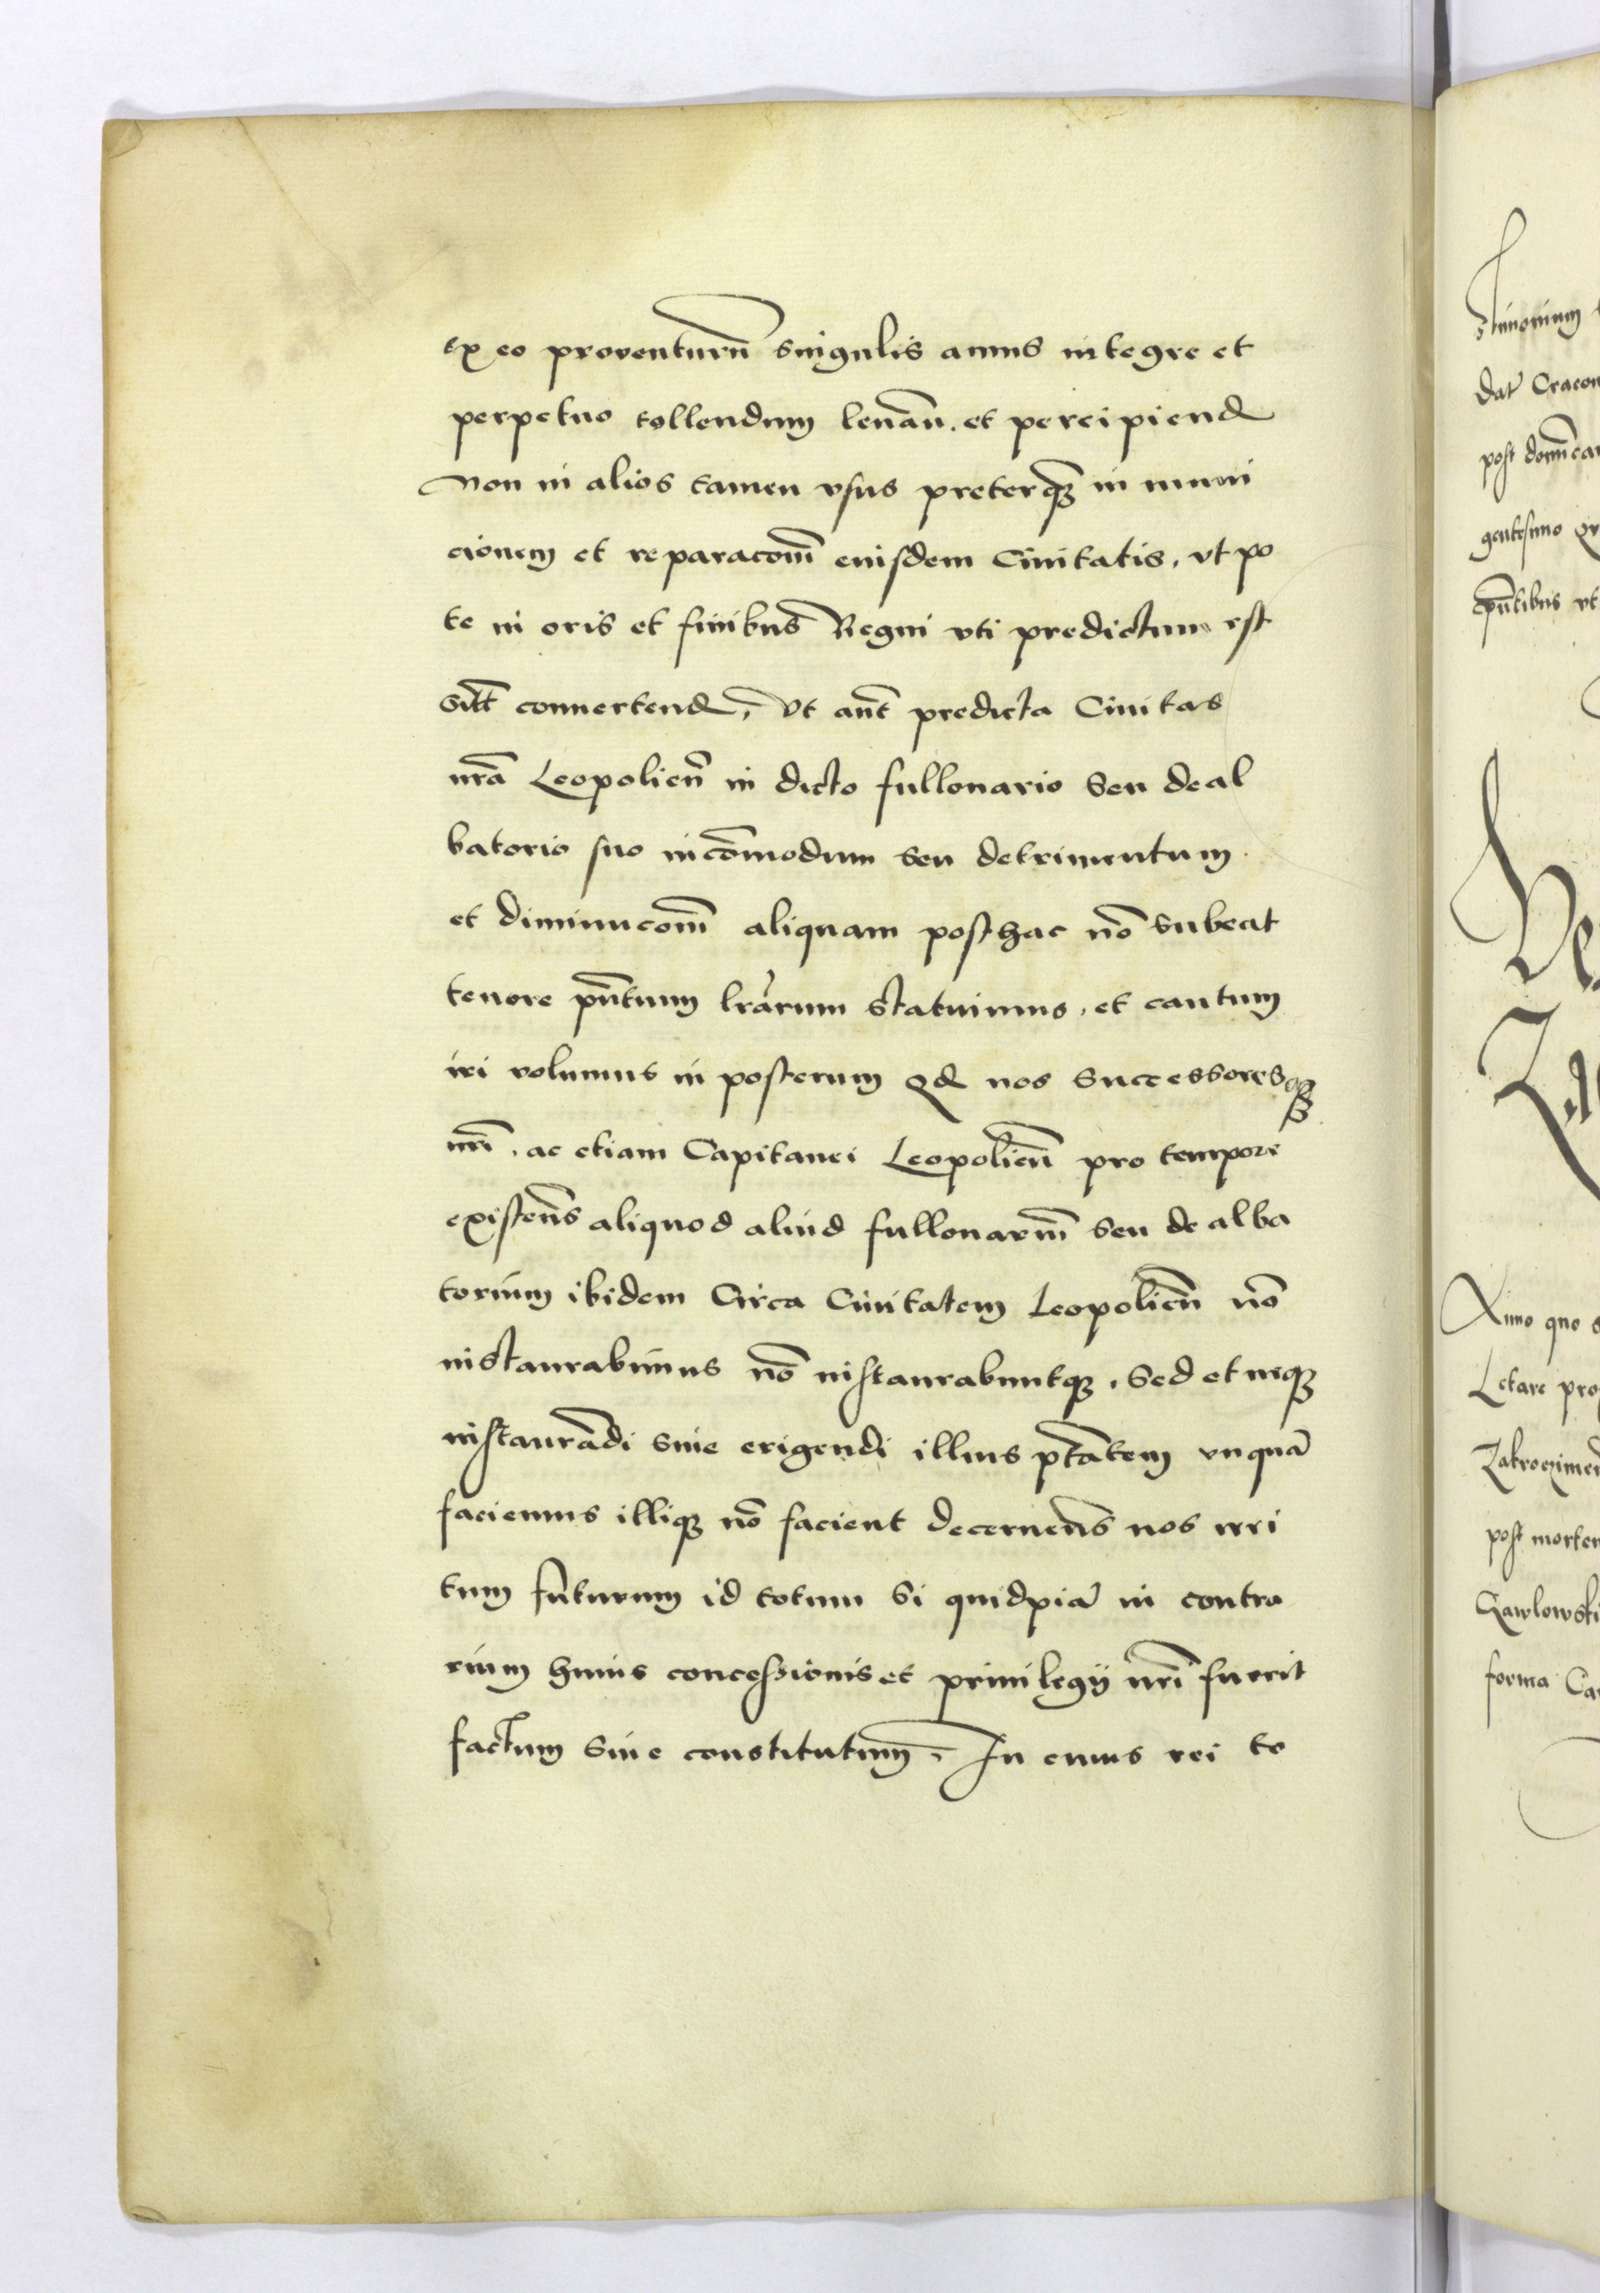 ex eo proventurū singulis annis integre et
perpetuo tollendum levāń. et percipiend
non in alios tamen vsus preterq̃ in muni
cionem et reparacōm̄ eiusdem Civitatis, vt po
te in oris et finibus Regni vti predictum est
sitt̄ convertend, Vt aut̄ predicta Civitas
nr̄a Leopolieñ in dicto fullonario seu deal
batorio suo incōmodum seu detrimentum
et diminucōm̄ aliquam posthac nō subeat
tenore pn̄tium lr̄arum statuimus, et cautum
iri volumus in posterum Qd nos successoresq̃
nr̄i, ac etiam Capitanei Leopolieñ pro tempore
existeñs aliquod aliud fullonariū seu dealba
torium ibidem Circa Civitatem Leopolieñ nō
instaurabimus nō instaurabuntq̃, Sed et neq̃
instaurādi sive erigendi illius ptātem vnquā
faciemus illiq̃ nō facient decerneñs nos irri
tum futurum id totum Si quidpiā in contra
rium huius concessionis et privilegij nr̄i fuerit
factum sive constitutum, In cuius rei te
stimonium
Dat̄ Cracov
post domīca
gentesimo
pn̄tibus vt
Anno quo
Letare
Zakroczimen
post morte
Gawlowski
forma